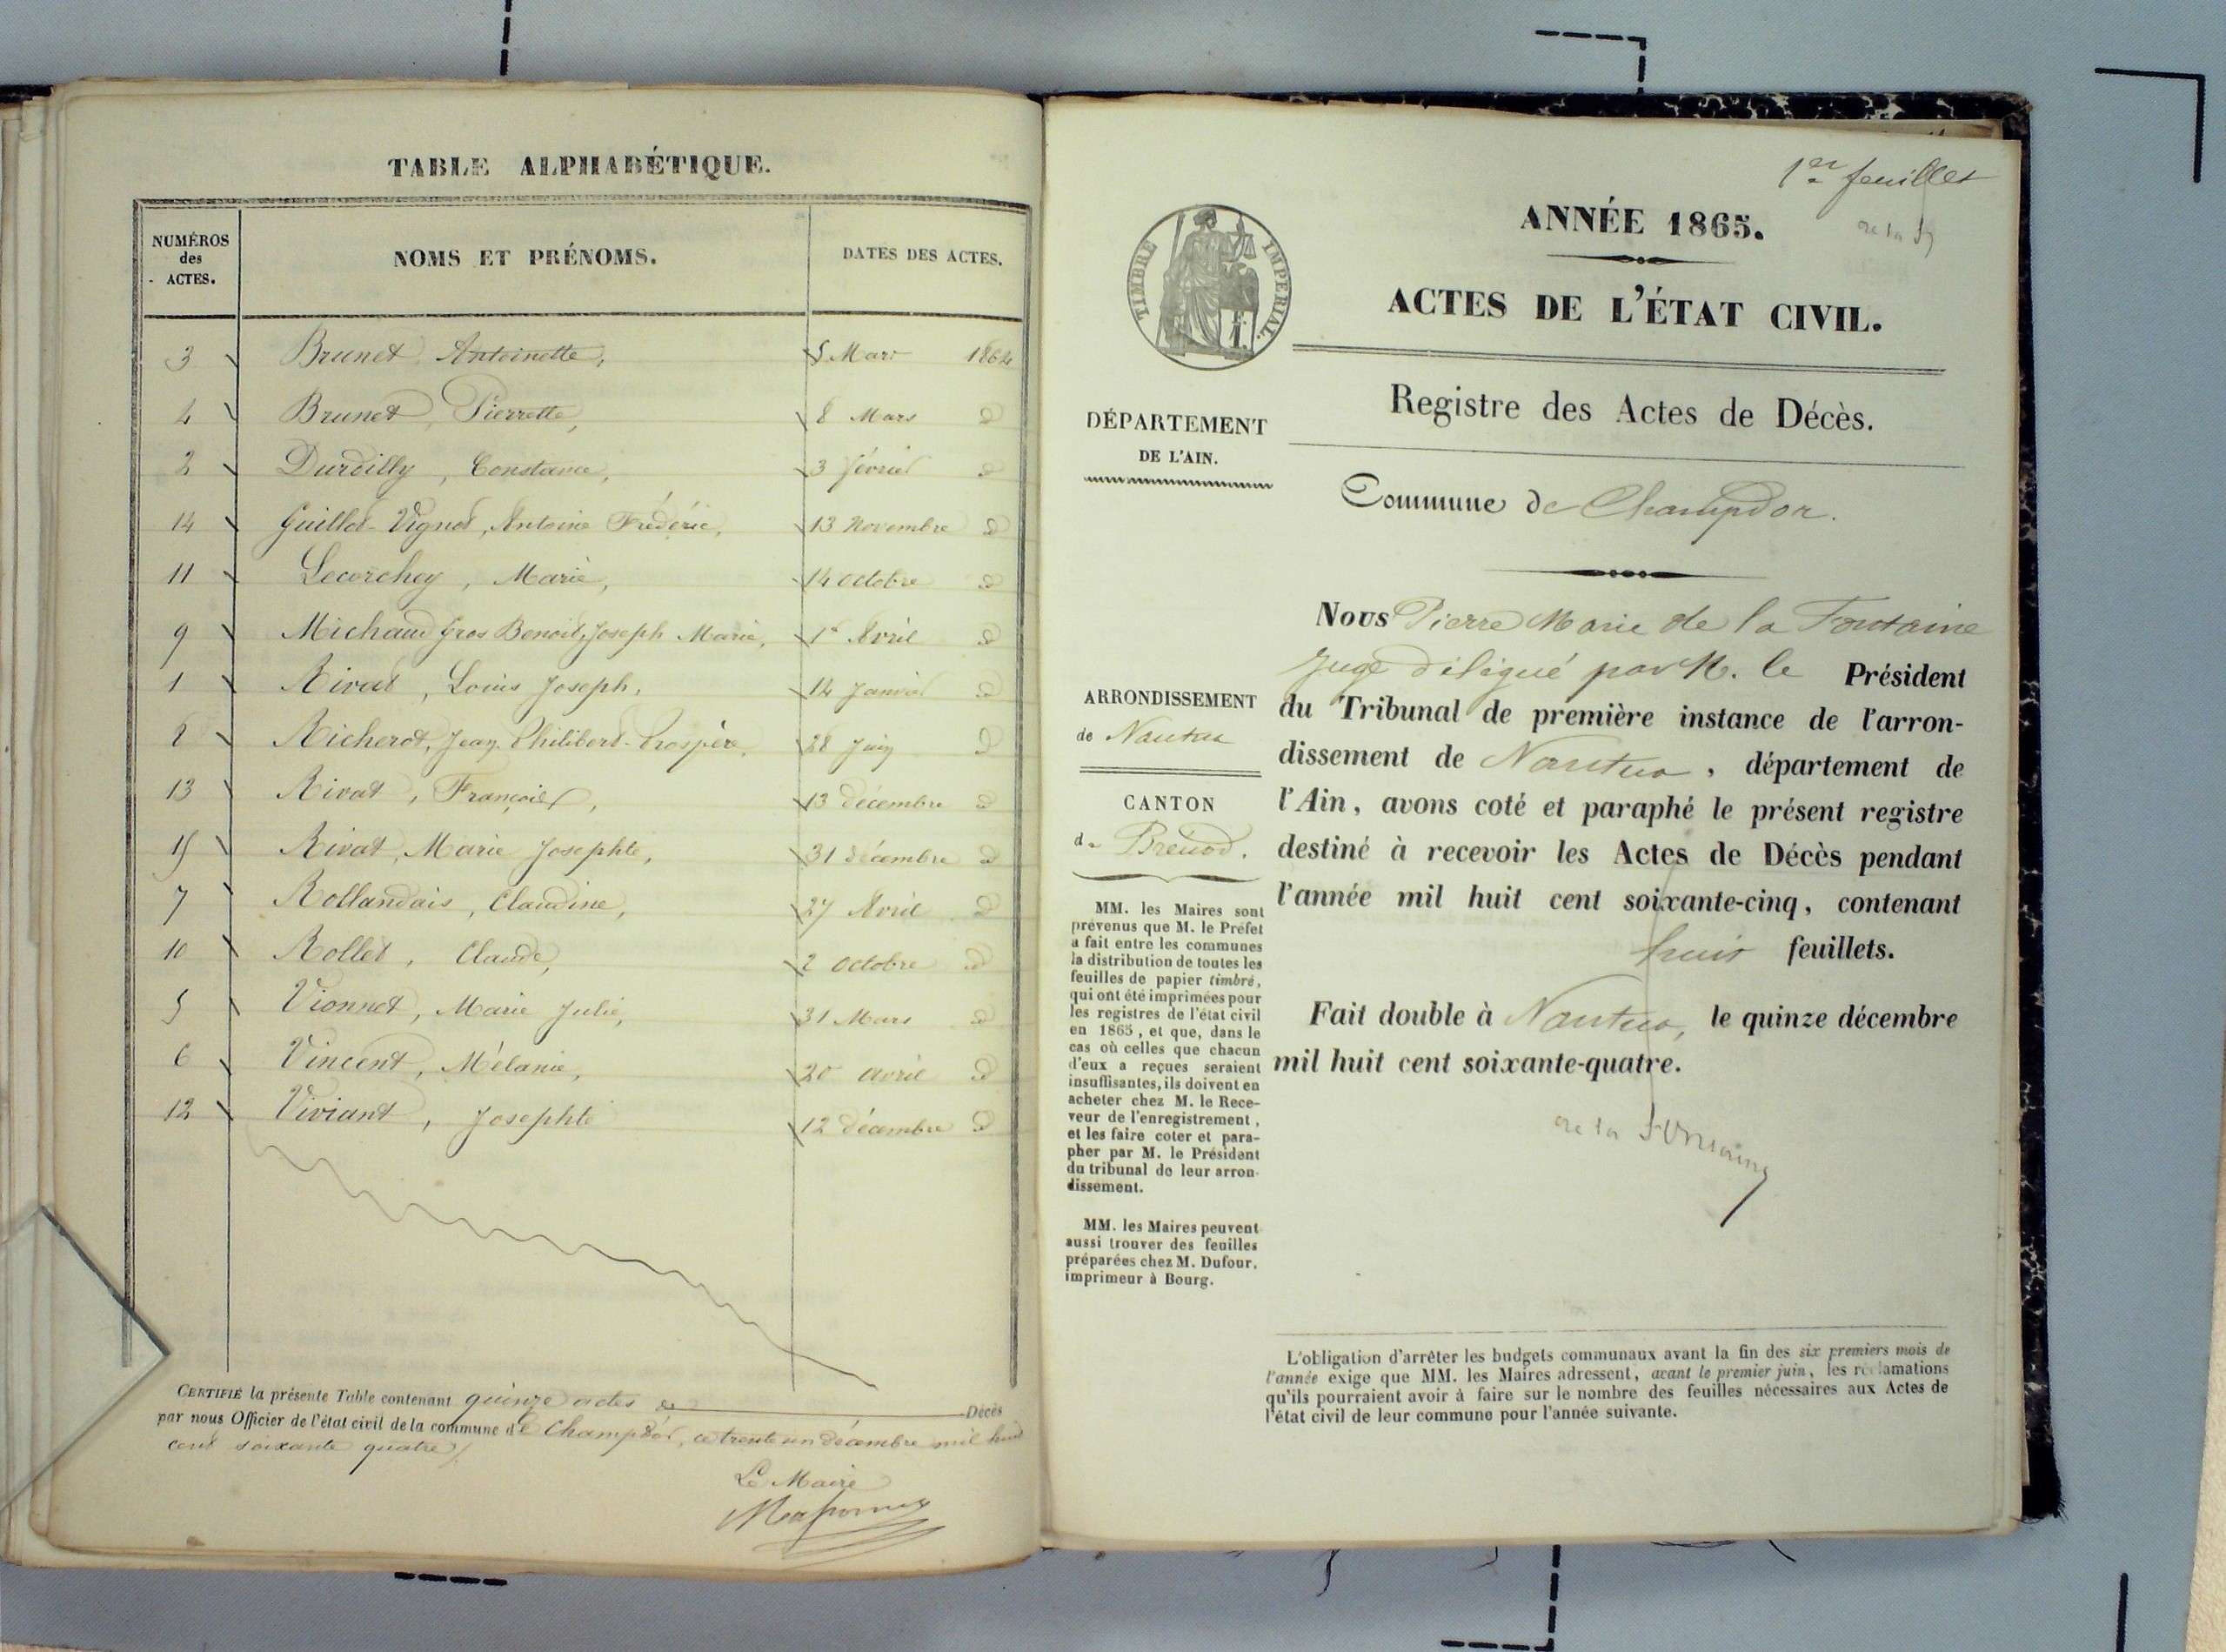 TABLE ALPHABÉTIQUE.
NUMÉROS des ACTES. NOMS ET PRÉNOMS. DATES DES ACTES.
3 Brunet Antoinette, 5 Mars 1864
4 Brunet, Pierrette, 8 Mars d
2 Durdilly, Constance, 3 février d
14 Guillot-Vignot, Antoine Frédéric, 13 Novembre d
11 Lecorchey, Marie, 14 octobre d
9 Michaud Gros Benoit, Joseph Marie, 1er Avril d
1 Rivat, Louis Joseph, 14 Janvier d
8 Richerot, Jean Philibert-Prospère, 28 Juin d
13 Rivat, François, 13 décembre d
15 Rivat, Marie Josephte, 31 décembre d
7 Rollandais, Claudine, 27 Avril d
10 Rollet, Claude, 2 octobre d
5 Vionnet, Marie Julie, 31 Mars d
6 Vincent, Mélanie, 20 avril d
12 Viviant, Josephte 12 décembre d
CERTIFIÉ la présente Table contenant quinze actes de Décès
par nous Officier de l'état civil de la commune de Champdor, ce trente un décembre mil huit
cent soixante quatre
Le Maire
1er feuillet
de la F
ANNÉE 1865.
TIMBRE IMPÉRIAL.
ACTES DE L'ÉTAT CIVIL.
Registre des Actes de Décès.
Commune de Champdor.
DÉPARTEMENT
DE L'AIN.
ARRONDISSEMENT
de Nantua
CANTON
de Brénod.
MM. les Maires sont
prévenus que M. le Préfet
a fait entre les communes
la distribution de toutes les
feuilles de papier timbré,
qui ont été imprimées pour
les registres de l'état civil
en 1865, et que, dans le
cas où celles que chacun
d'eux a reçues seraient
insuffisantes, ils doivent en
acheter chez M. le Rece-
veur de l'enregistrement,
et les faire coter et para-
pher par M. le Président
du tribunal de leur arron-
dissement.
MM. les Maires peuvent
aussi trouver des feuilles
préparées chez M. Dufour,
imprimeur à Bourg.
Nous Pierre Marie de la Fontaine
Juge délégué par M. le Président
du Tribunal de première instance de l'arron-
dissement de Nantua, département de
l'Ain, avons coté et paraphé le présent registre
destiné à recevoir les Actes de Décès pendant
l'année mil huit cent soixante-cinq, contenant
huit feuillets.
Fait double à Nantua, le quinze décembre
mil huit cent soixante-quatre.
de la Fontaine
L'obligation d'arrêter les budgets communaux avant la fin des six premiers mois de
l'année exige que MM. les Maires adressent, avant le premier juin, les réclamations
qu'ils pourraient avoir à faire sur le nombre des feuilles nécessaires aux Actes de
l'état civil de leur commune pour l'année suivante.